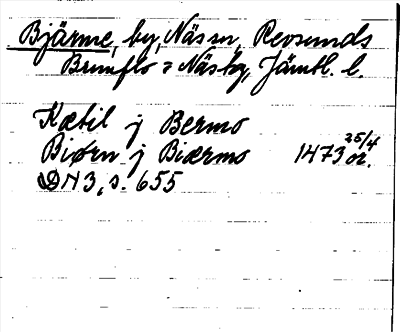 Bjärme, by, Näs sn, Revsunds
Brunflo o Näs tg, Jämtl. l.
Kætil j Bermo
Biørn j Biærmo 1473 25/4 or.
DN 3, s. 655